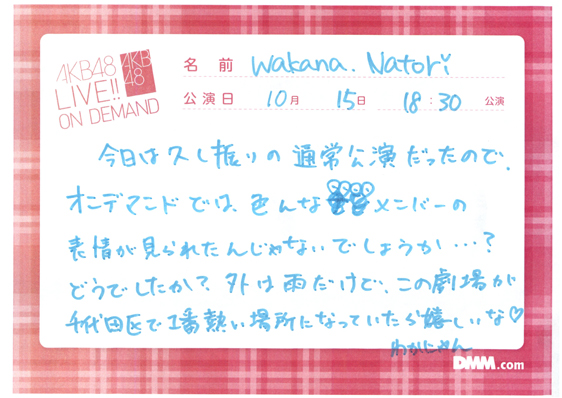 AKB48
LIVE!!
ON DEMAND
AKB
48
名前 Wakana. Natori
公演日 10月 15日 18:30 公演
今日は久し振りの通常公演だったので、
オンデマンドでは、色んなメンバーの
表情が見られたんじゃないでしょうか…?
どうでしたか?外は雨だけど、この劇場が
千代田区で1番熱い場所になっていたら嬉しいな♡
わかにゃん
DMM.com